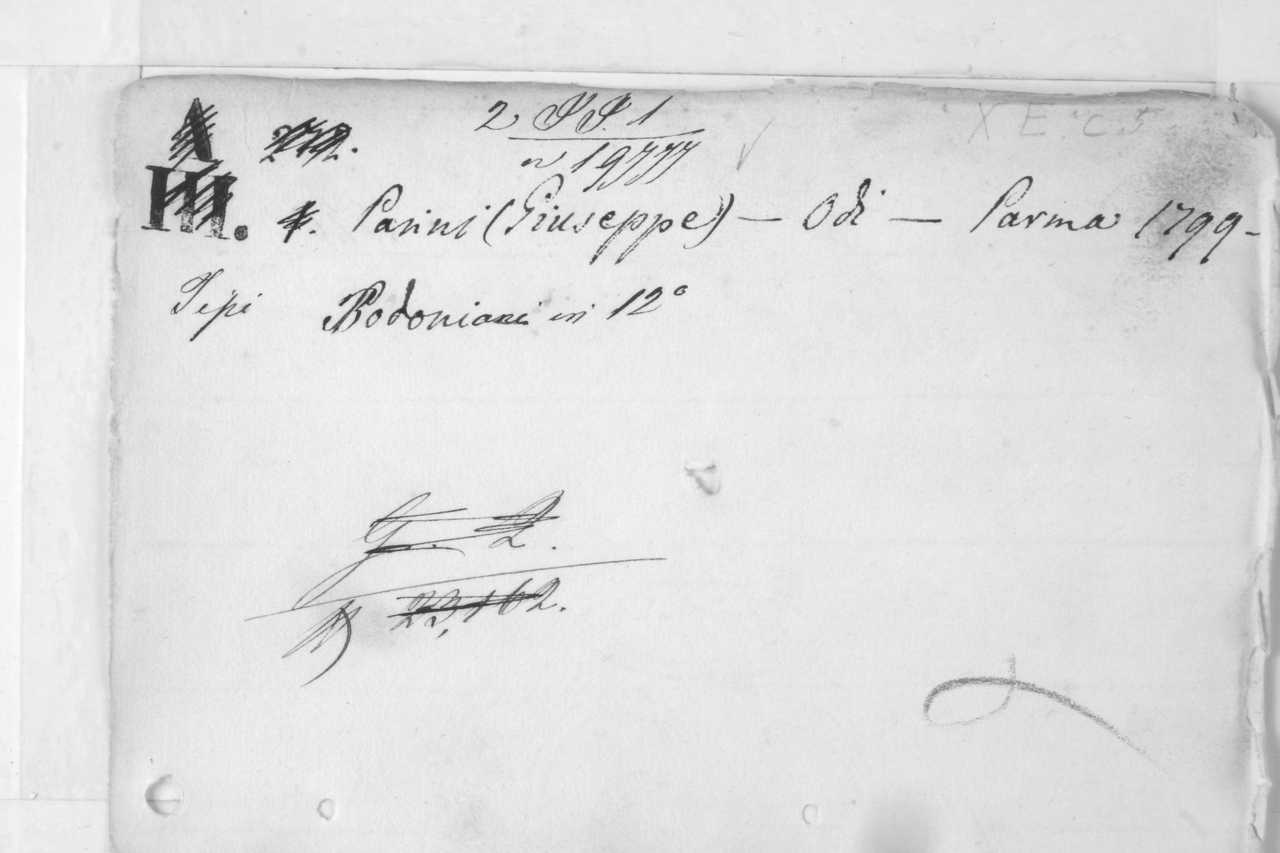 A
III.
2 SS. 1
n 19777
X E. C. 5
Parini (Giuseppe) — Odi — Parma 1799 -
Tipi Bodoniani in 12°
G. 2.
N 23,162.